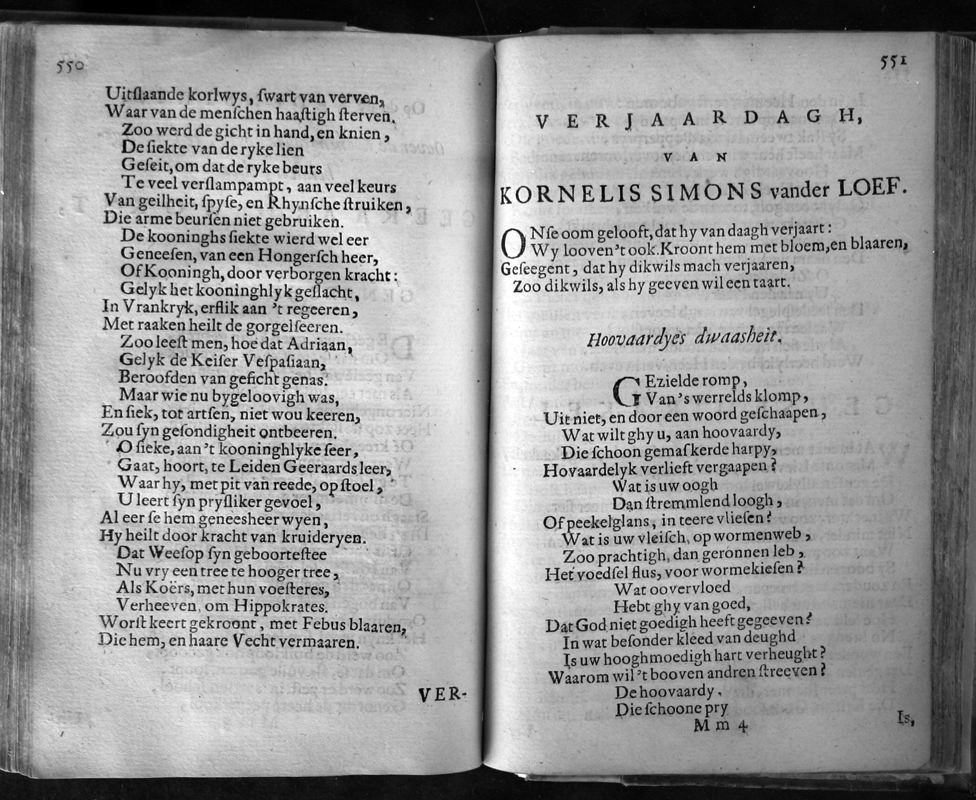 550
Uitſlaande korlwys, ſwart van verven,
Waar van de menſchen haaſtigh ſterven.
Zoo werd de gicht in hand, en knien,
De ſiekte van de ryke lien
Geſeit, om dat de ryke beurs
Te veel verſlampampt, aan veel keurs
Van geilheit, ſpyſe, en Rhynſche ſtruiken,
Die arme beurſen niet gebruiken.
De kooninghs ſiekte wierd wel eer
Geneeſen, van een Hongerſch heer,
Of Kooningh, door verborgen kracht:
Gelyk het kooninghlyk geſlacht,
In Vrankryk, erflik aan 't regeeren,
Met raaken heilt de gorgelſeeren.
Zoo leeſt men, hoe dat Adriaan,
Gelyk de Keiſer Veſpaſiaan,
Beroofden van geſicht genas.
Maar wie nu bygeloovigh was,
En ſiek, tot artſen, niet wou keeren,
Zou ſyn geſondigheit ontbeeren.
O ſieke, aan 't kooninghlyke ſeer,
Gaat, hoort, te Leiden Geeraards leer,
Waar hy, met pit van reede, op ſtoel,
U leert ſyn pryſliker gevoel,
Al eer ſe hem geneesheer wyen,
Hy heilt door kracht van kruideryen.
Dat Weeſop ſyn geboorteſtee
Nu vry een tree te hooger tree,
Als Koërs, met hun voeſteres,
Verheeven, om Hippokrates.
Worſt keert gekroont, met Febus blaaren,
Die hem, en haare Vecht vermaaren.
VER-
551
VERJAARDAGH,
VAN
KORNELIS SIMONS vander LOEF.
ONſe oom gelooft, dat hy van daagh verjaart:
Wy looven't ook. Kroont hem met bloem, en blaaren,
Geſeegent, dat hy dikwils mach verjaaren,
Zoo dikwils, als hy geeven wil een taart.
Hoovaardyes dwaasheit.
GEzielde romp,
Van's werrelds klomp,
Uit niet, en door een woord geſchaapen,
Wat wilt ghy u, aan hoovaardy,
Die ſchoon gemaſkerde harpy,
Hovaardelyk verlieft vergaapen?
Wat is uw oogh
Dan ſtremmlend loogh,
Of peekelglans, in teere vlieſen?
Wat is uw vleiſch, op wormenweb,
Zoo prachtigh, dan geronnen leb,
Het voedſel flus, voor wormekieſen?
Wat oovervloed
Hebt ghy van goed,
Dat God niet goedigh heeft gegeeven?
In wat beſonder kleed van deughd
Is uw hooghmoedigh hart verheught?
Waarom wil't booven andren ſtreeven?
De hoovaardy,
Die ſchoone pry
Mm 4
Is,